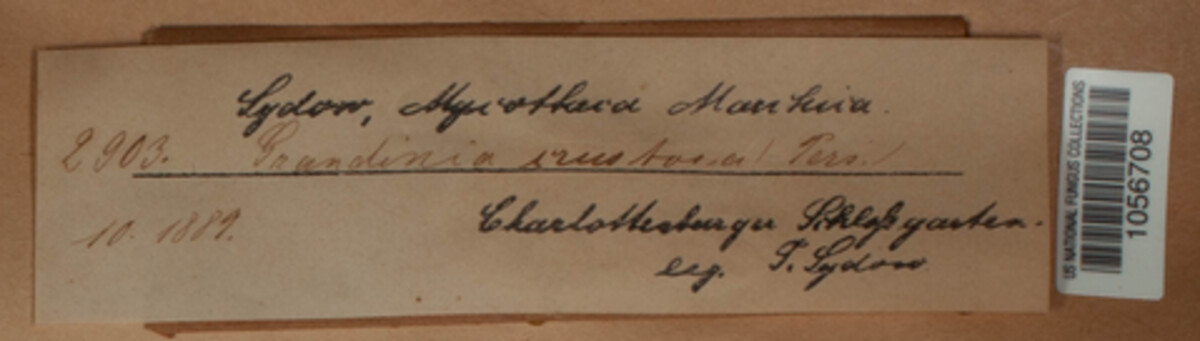 Sydow, Mycotheca Marchica.
2903. Grandinia crustosa (Pers.)
10. 1889.
Charlottenburger Schloßgarten.
leg. P. Sydow
US NATIONAL FUNGUS COLLECTIONS
1056708